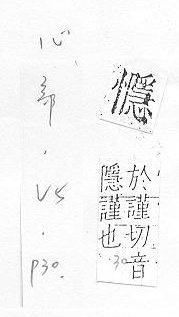 懚
於謹切音
隱謹也
30
心部.V5.P30.